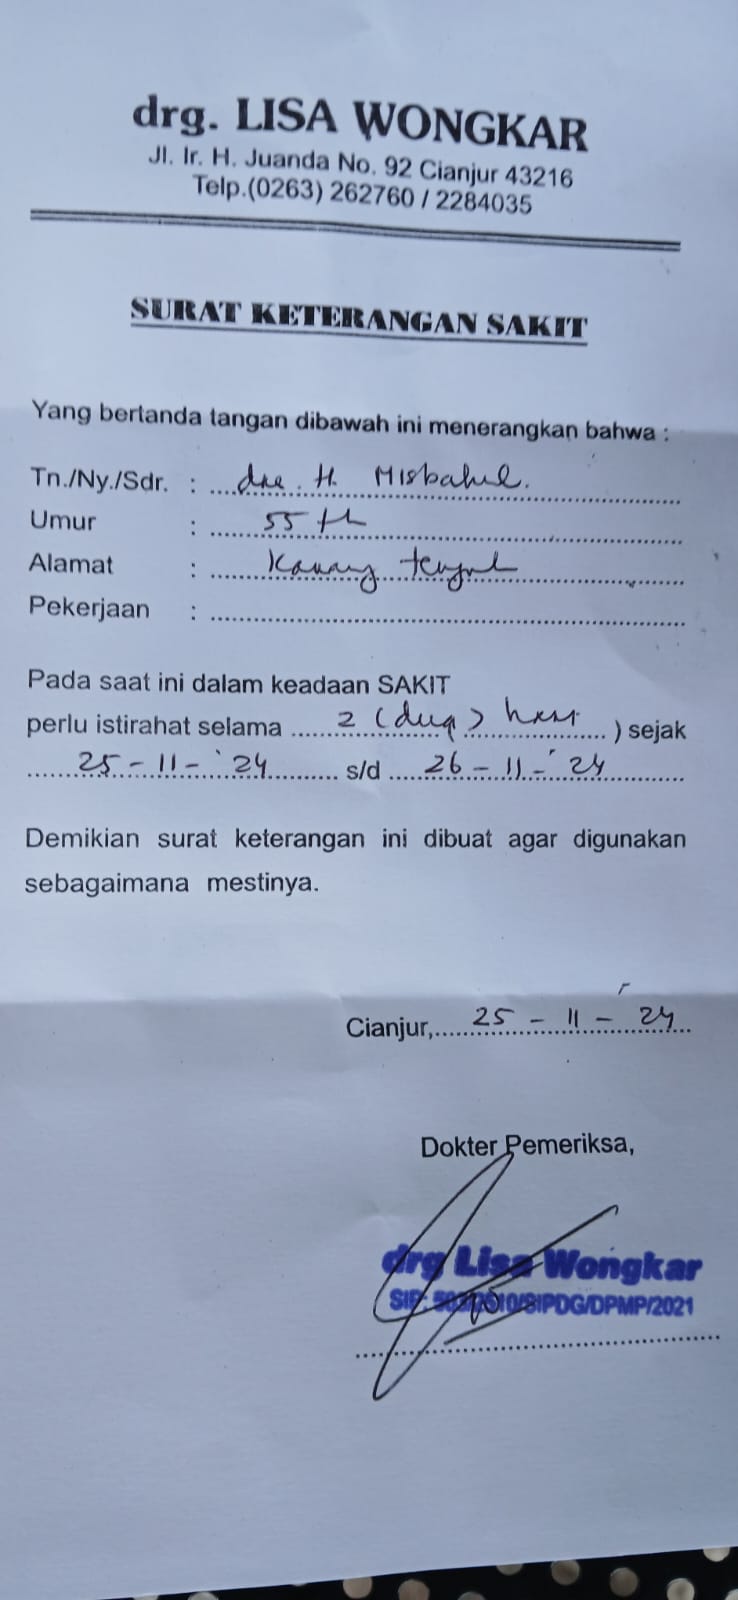 drg. LISA WONGKAR
Jl. Ir. H. Juanda No. 92 Cianjur 43216
Telp.(0263) 262760 / 2284035
SURAT KETERANGAN SAKIT
Yang bertanda tangan dibawah ini menerangkan bahwa :
Tn./Ny./Sdr. : H. Misbahul.
Umur : 55 th
Alamat : Karang tengah
Pekerjaan :
Pada saat ini dalam keadaan SAKIT
perlu istirahat selama 2 (dua) hari ) sejak
25 - 11 - '24 s/d 26 - 11 - '24
Demikian surat keterangan ini dibuat agar digunakan
sebagaimana mestinya.
Cianjur, 25 - 11 - '24
Dokter Pemeriksa,
drg Lisa Wongkar
SIP: /SIPDG/DPMP/2021